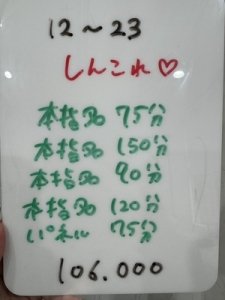 12～23
しんこれ♡
本指名 75分
本指名 150分
本指名 90分
本指名 120分
パネル 75分
106.000